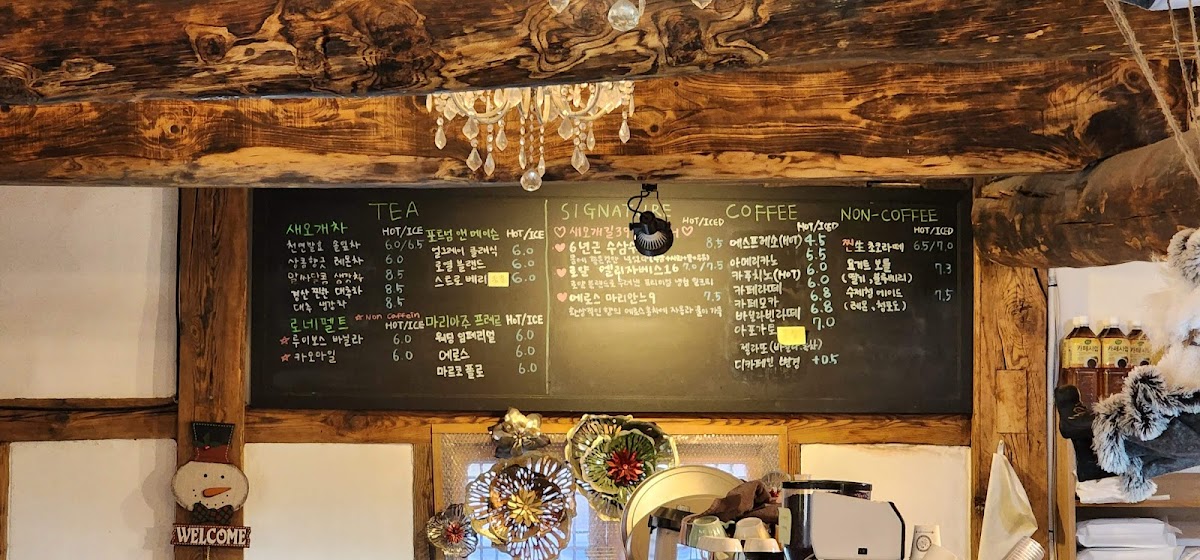 TEA
새오개차 HOT/ICE
천연발효 솔잎차 6.0/6.5
상큼향긋 레몬차 6.0
알싸달콤 생강차 8.5
경산 찐한 대추차 8.5
대추 생강차 8.5
로네펠트 ☆Non Caffein HOT/ICE
☆루이보스 바닐라 6.0
☆카모마일 6.0
포트넘 앤 메이슨 HOT/ICE
얼그레이 클래식 6.0
로열 블랜드 6.0
스트로베리 6.0
마리아주 프레르 HOT/ICE
웨딩 임페리얼 6.0
에로스 6.0
마르코 폴로 6.0
SIGNATURE HOT/ICED
♡새오개길39
♡6년근 수삼 8.5
♡로얄 엘리자베스16 7.0/7.5
로얄 블랜드로
♡에로스 마리안느9 7.5
COFFEE HOT/ICED
에스프레소(HOT) 4.5
아메리카노 5.5
카푸치노(HOT) 6.0
카페라떼 6.0
카페모카 6.8
바닐라빈라떼 6.8
아포가토 7.0
젤라또
디카페인 변경 +0.5
NON-COFFEE HOT/ICED
찐生 초코라떼 6.5/7.0
요거트 볼 7.3
(딸기, 블루베리)
수제청 에이드 7.5
(레몬, 청포도)
WELCOME
카페사업
카페사업
카페사업